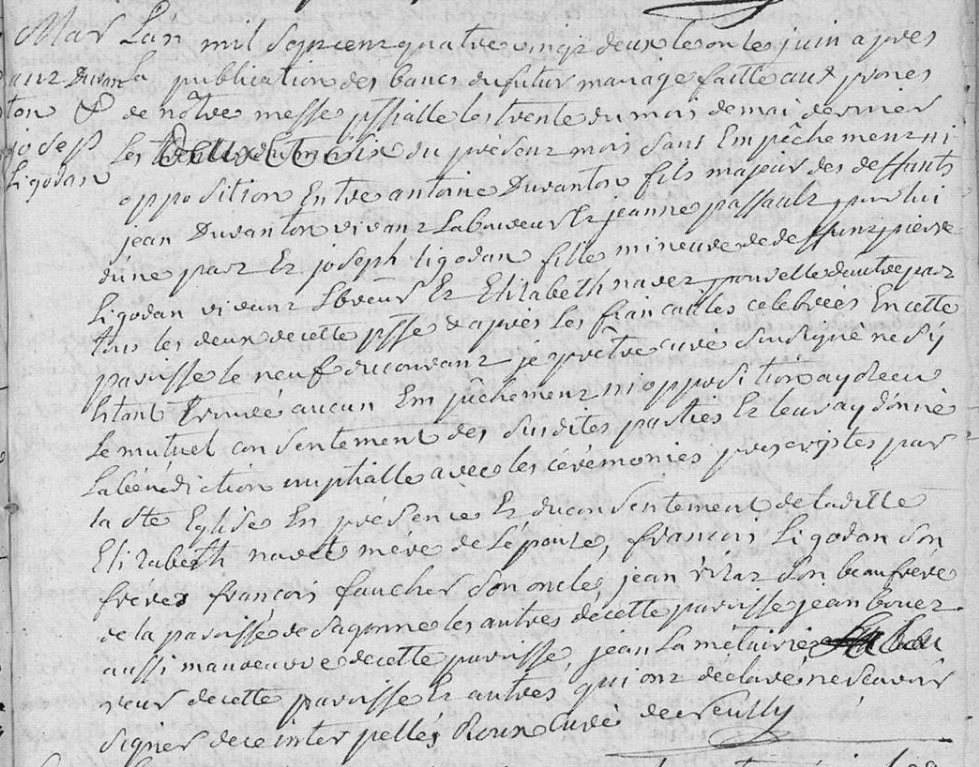 Mar
antoine Duran
ton &
joseph
Ligodan
Lan mil sept cent quatre vingt deux le onze juin apres
la publication des bancs du futur mariage faitte aux prones
de nôtre messe pssialle les trente du mois de mai dernier
les deux du présent mois sans Empêchement ni
opposition Entre antoine Duranton fils majeur des deffunts
jean Duranton vivant Laboureur Et jeanne passault pour lui
dune part Et joseph Ligodan fille mineure de deffunt pierre
Ligodan vivant Lbreur Et Elisabeth navet pour elle dautre part
tous les deux de cette psse & après les fiancailles celebrées En cette
paroisse le neuf du courant je prêtre curé soussigné ne sÿ
Etant trouvé aucun Empêchement ni opposition ay recu
Le mutuel consentement des susdites parties Et leur ay donné
La bénediction nuptialle avec les cérémonies prescrittes par
la Ste Eglise En présence Et du consentement de laditte
Elizabeth navet mère de Lépouse, francois Ligodan son
frere françois faucher son oncle, jean son beaufrere
de la paroisse de Sagonne les autres de cette paroisse jean bouet
aussi manoeuvre de cette paroisse, jean Lametairie Labou
reur de cette paroisse Et autres qui ont déclaré ne scavoir
signer de ce interpellés Roux Curé de vereully